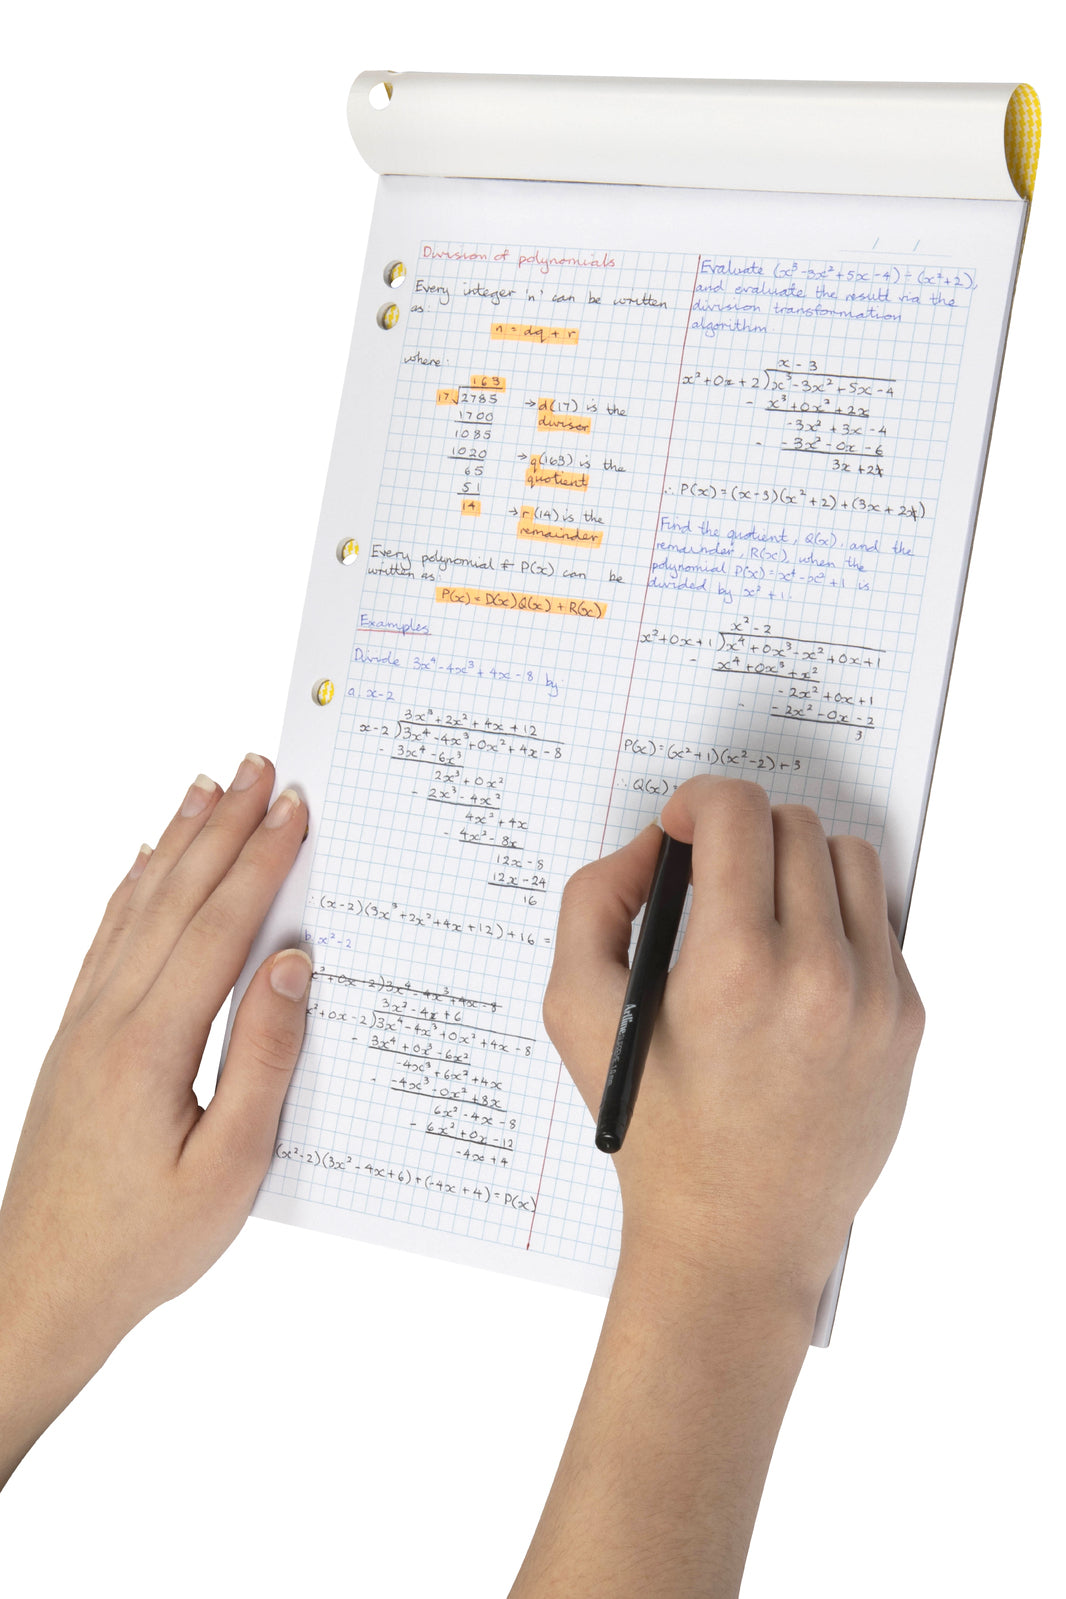 Division of polynomials
Every integer 'n' can be written
as:
n = dq + r
where:
163
17√2785
1700
1085
1020
65
51
14
→ d(17) is the
divisor
→ q(163) is the
quotient
→ r(14) is the
remainder
Every polynomial P(x) can be
written as:
P(x) = D(x)Q(x) + R(x)
Examples
Divide 3x⁴ - 4x³ + 4x - 8 by:
a. x - 2
3x³ + 2x² + 4x + 12
x - 2 ) 3x⁴ - 4x³ + 0x² + 4x - 8
- 3x⁴ - 6x³
2x³ + 0x²
- 2x³ - 4x²
4x² + 4x
- 4x² - 8x
12x - 8
12x - 24
16
∴ (x-2)(3x³ + 2x² + 4x + 12) + 16 =
b. x² - 2
x² + 0x - 2 ) 3x⁴ - 4x³ + 4x - 8
3x² - 4x + 6
x² + 0x - 2 ) 3x⁴ - 4x³ + 0x² + 4x - 8
- 3x⁴ + 0x³ - 6x²
-4x³ + 6x² + 4x
- -4x³ - 0x² + 8x
6x² - 4x - 8
- 6x² + 0x - 12
-4x + 4
(x² - 2)(3x² - 4x + 6) + (-4x + 4) = P(x)
/ /
Evaluate (x³ - 3x² + 5x - 4) ÷ (x² + 2),
and evaluate the result via the
division transformation
algorithm.
x - 3
x² + 0x + 2 ) x³ - 3x² + 5x - 4
- x³ + 0x² + 2x
-3x² + 3x - 4
- -3x² - 0x - 6
3x + 2
∴ P(x) = (x-3)(x² + 2) + (3x + 2)
Find the quotient, Q(x), and the
remainder, R(x), when the
polynomial P(x) = x⁴ - x² + 1 is
divided by x² + 1.
x² - 2
x² + 0x + 1 ) x⁴ + 0x³ - x² + 0x + 1
- x⁴ + 0x³ + x²
-2x² + 0x + 1
- -2x² - 0x - 2
3
P(x) = (x² + 1)(x² - 2) + 3
∴ Q(x) =
Artline